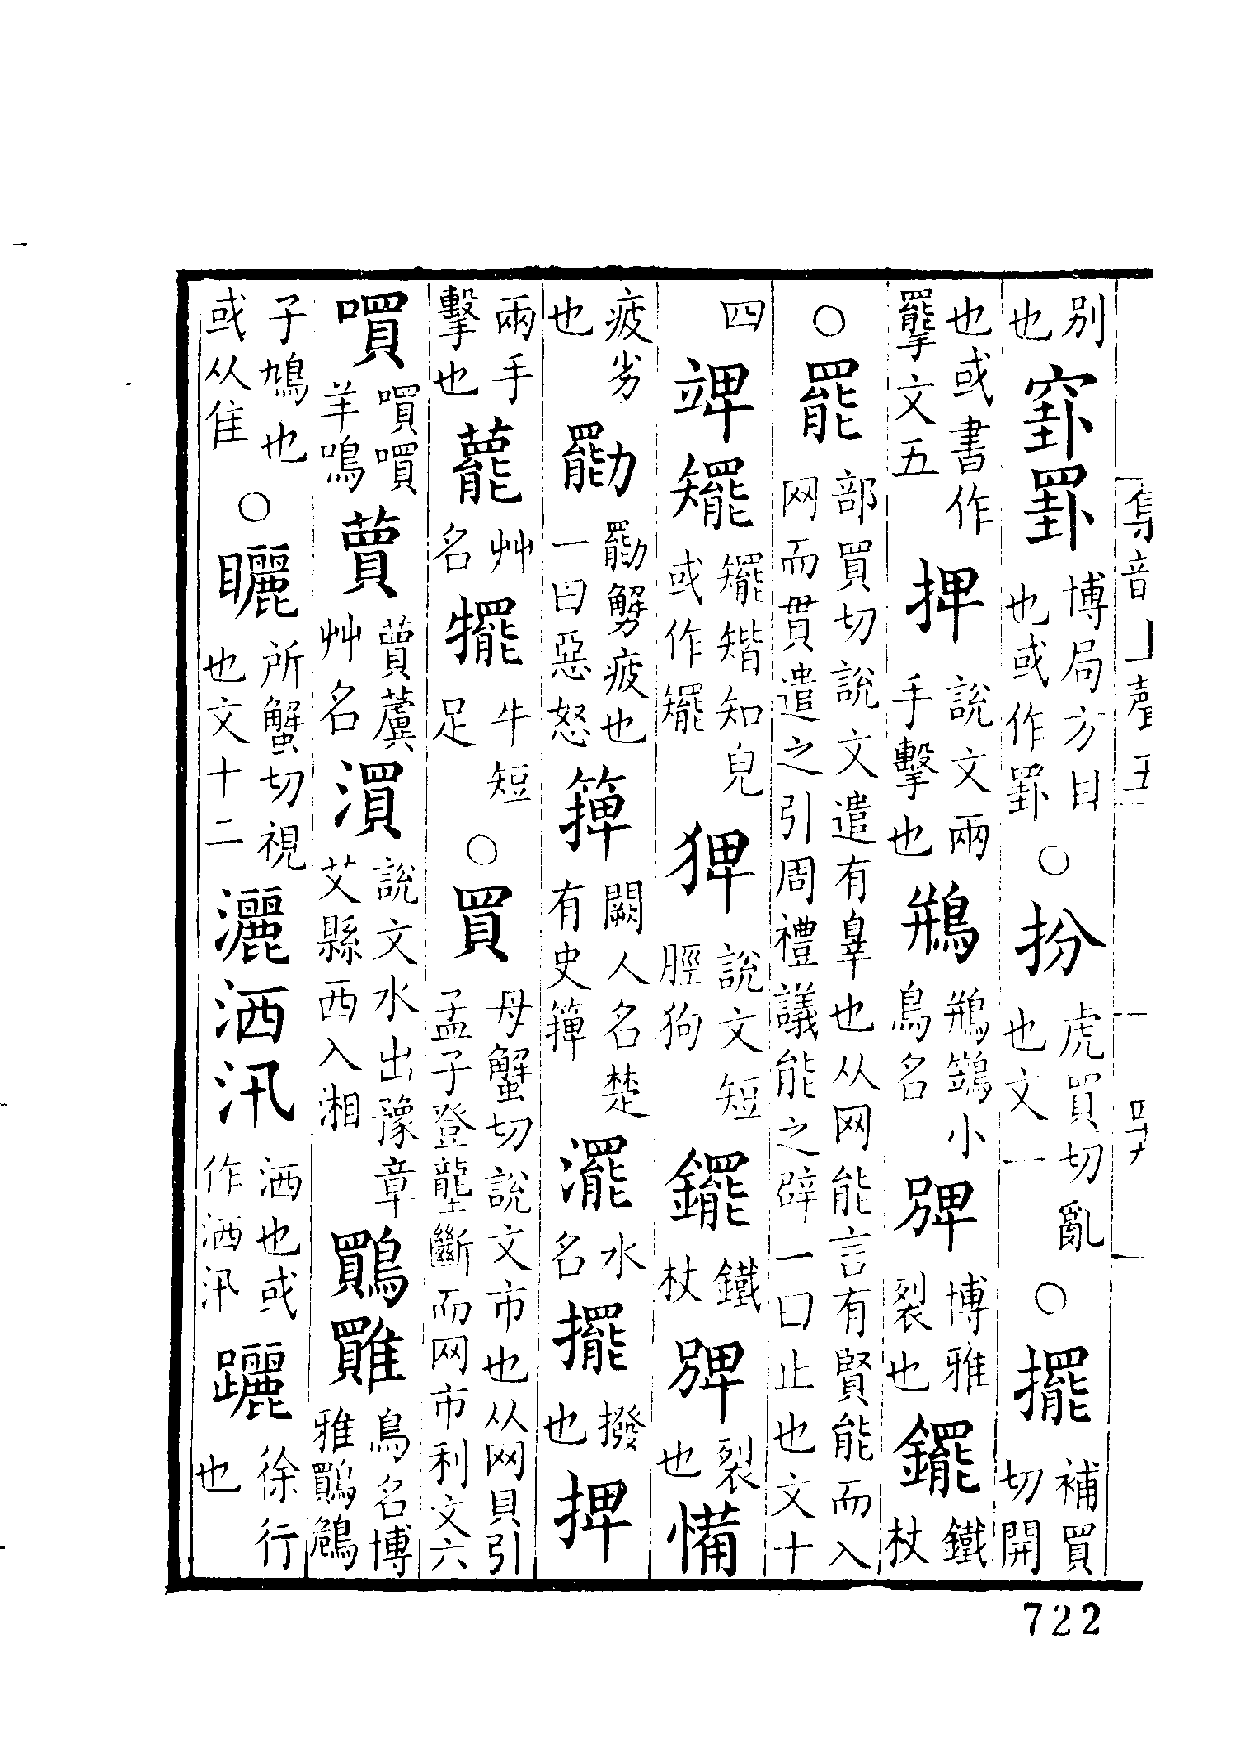 集韻上聲五 四十
別也罫博局方目也或作罫○扮虎買切亂也文一○擺補買切開
也或書作文五捭說文兩手擊也鳥名小裂也博雅䥯鐵杖
○罷部買切說文遣有辠也从网能言有賢能而入网而貫遣之引周禮議能之辟一曰止也文十
四矲知皃或作矲猈說文短脛狗䥯鐵杖裂也
疲劣也疲也一曰惡怒闕人名楚有史水名擺撥也捭
兩手擊也藣艸名犤牛短足○買母蟹切說文市也从网貝引孟子登壟斷而网市利文六
嘪嘪嘪羊鳴蕒艸名說文水出豫章艾縣西入湘鷶鳥名博雅鷶
子也或从隹○矖所蟹切視也文十二灑洒汛洒也或作洒汛躧徐行也
722